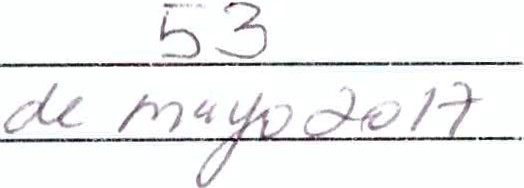 53
de mayo 2017